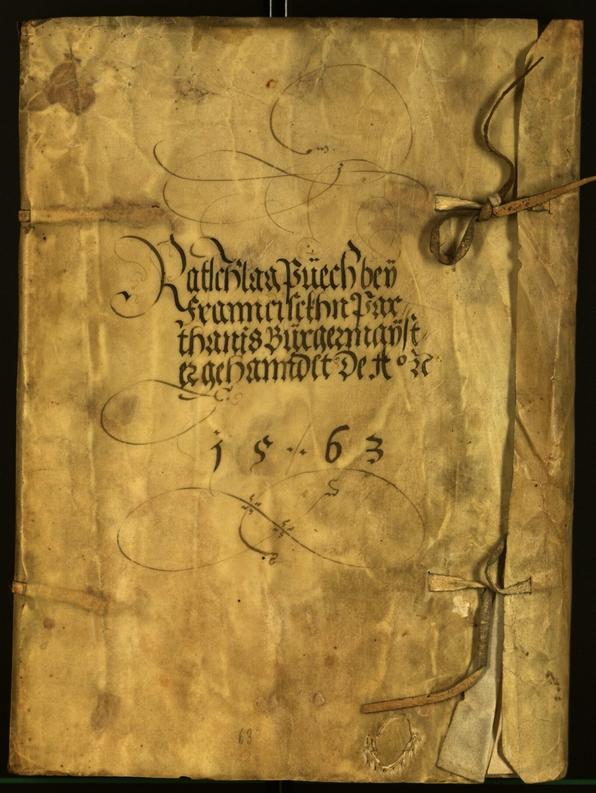 Ratschlag Püech bey
Franncisckhn Par-
thanis Bürgermayst-
er gehanndlt De Aº ꝛc
1563
63